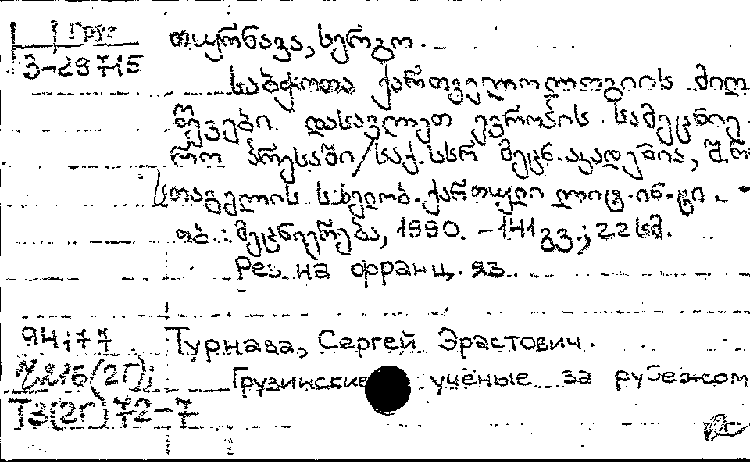 Груз
3-29715
თურნავა, სერგო.
საბჭოთა ქართველოლოგიის მიღ
წევები დასავლეთ ევროპის სამეცნიე-
რო პრესაში/საქ. სსრ მეცნ. აკადემია, შ. რუ
სთაველის სახელობ. ქართული ლიტ. ინ-ტი. -
თბ.: მეცნიერება, 1990. - 141 გვ.; 22 სმ.
Рез. на франц. яз.
94;77
Турнава, Сергей Эрастович.
Грузинские учёные за рубежом
T3(2Г)72-7